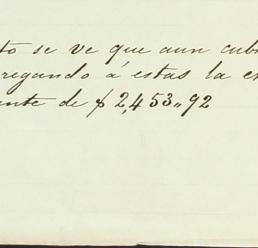 to se ve que aun cub
regando á estas la c
ante de $ 2,453.,92